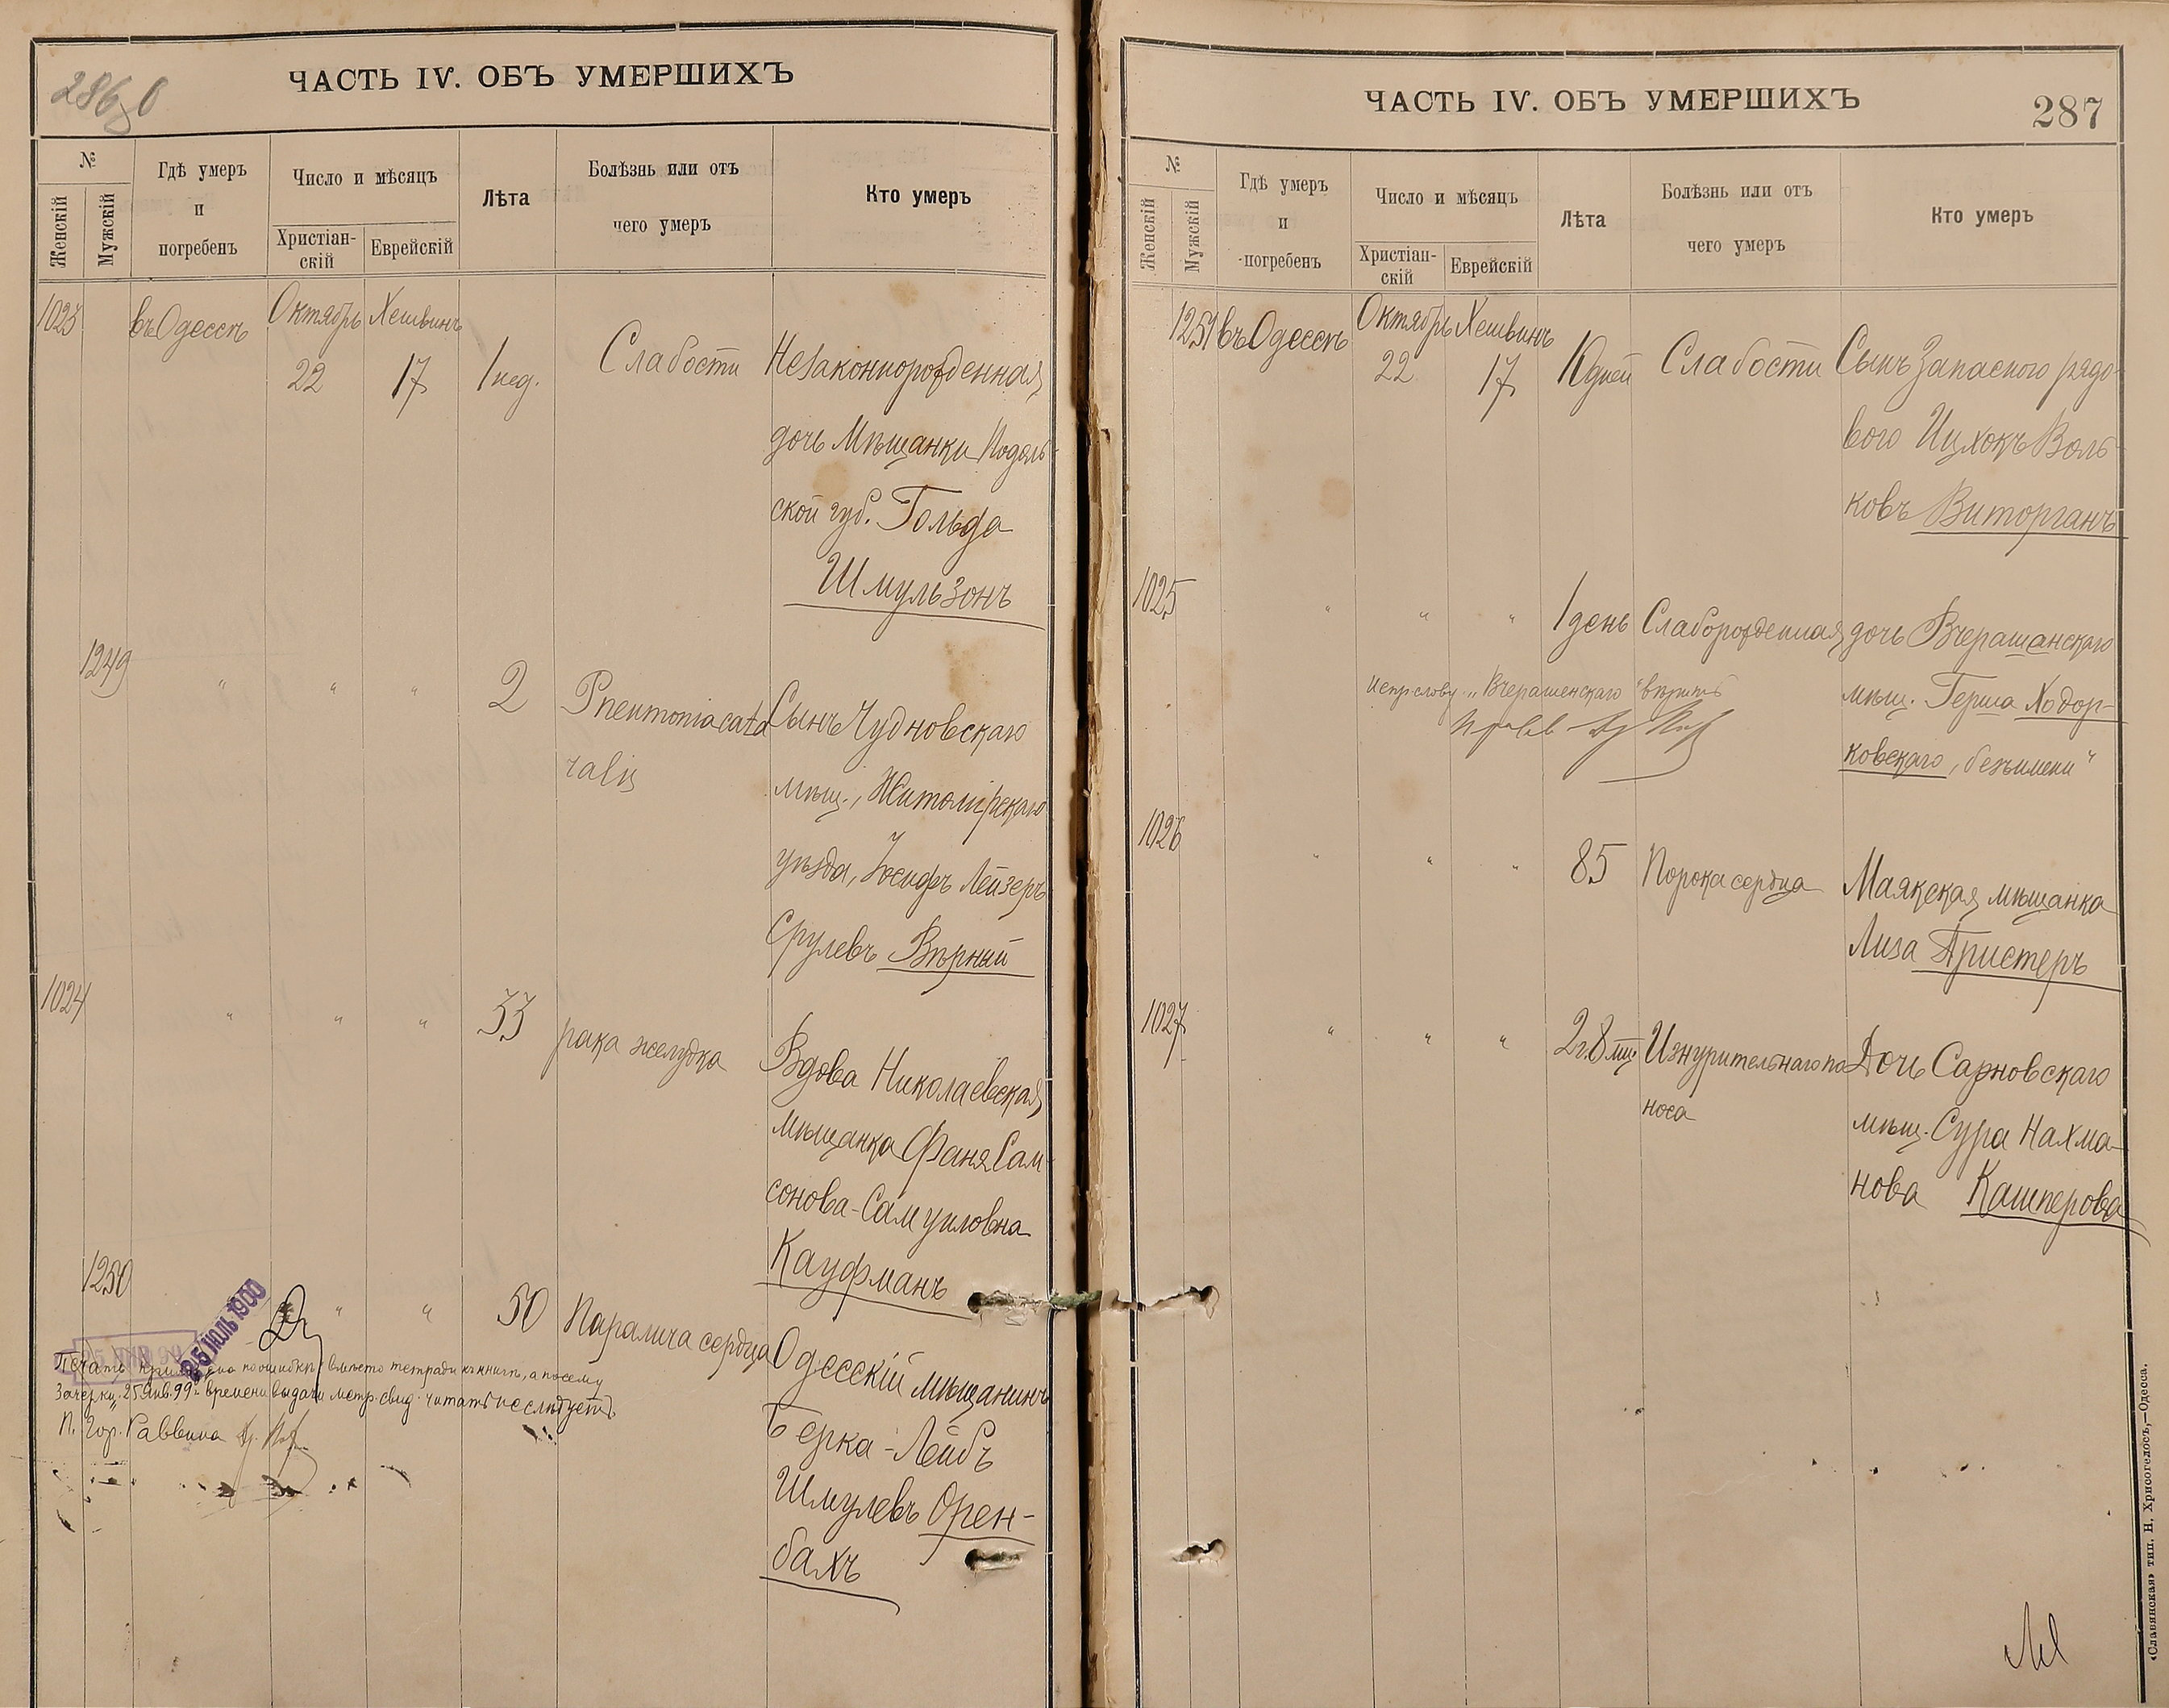 286 об
ЧАСТЬ IV. ОБЪ УМЕРШИХЪ
№
Женскій
Мужскій
Гдѣ умеръ
и
погребенъ
Число и мѣсяцъ
Христіан-
скій
Еврейскій
Лѣта
Болѣзнь или отъ
чего умеръ
Кто умеръ
1023
въ Одессѣ
Октябрь
22
Хешвинъ
17
1 нед.
Слабости
Незаконнорожденная
дочь Мѣщанки Подоль-
ской губ. Гольда
Шмульзонъ
1249
" " "
2
Pneumonia cata
ralis
Сынъ Чудновскаго
мѣщ., Житомірскаго
уѣзда, Іосифъ Лейзеръ
Срулевъ Вѣрный
1024
" " "
33
рака желудка
Вдова Николаевская
мѣщанка Фаня Сам-
сонова-Самуиловна
Кауфманъ
1250
" "
50
Паралича сердца
Одесскій мѣщанинъ
Берка-Лейбъ
Шмулевъ Орен-
бахъ
25 ІЮЛЬ 1900
Печать приложена по ошибкѣ вмѣсто тетради къ книгѣ, а посему
Зачеркн. 25 Янв. 99 г. времени выдачи метр. свид. читать не слѣдуетъ
П. Гор. Раввина
ЧАСТЬ IV. ОБЪ УМЕРШИХЪ
287
№
Женскій
Мужскій
Гдѣ умеръ
и
погребенъ
Число и мѣсяцъ
Христіан-
скій
Еврейскій
Лѣта
Болѣзнь или отъ
чего умеръ
Кто умеръ
1251
въ Одессѣ
Октябрь
22
Хешвинъ
17
10 дней
Слабости
Сынъ Запасного рядо-
вого Ицхокъ Воль-
ковъ Виторганъ
1025
" " "
1 день
Слаборожденная
дочь Вчерашанскаго
мѣщ. Герша Ходор-
ковскаго, безъимени"
Испр. слову „Вчерашенскаго" вѣрить
1026
" " "
85
Порока сердца
Маякская мѣщанка
Лиза Пристеръ
1027
" " "
2 г. 8 мц.
Изнурительнаго по
носа
Дочь Сарновскаго
мѣщ. Сура Нахма-
нова Кашперова
«Славянская» тип. Н. Хрисогелосъ,—Одесса.